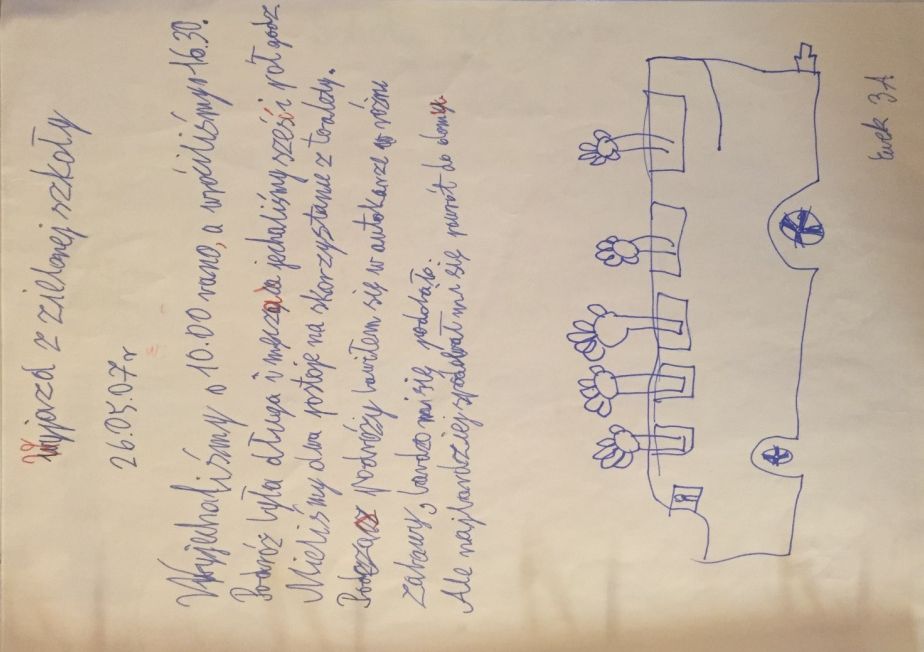 Wyjazd z zielonej szkoły
26.05.07r
Wyjechaliśmy o 10.00 rano, a wróciliśmy o 16.30.
Podróż była długa i męcząca jechaliśmy sześć i pół godz
Mieliśmy dwa postoje na skorzystanie z toalety.
Podczas podróży bawiłem się w autokarze w różne
zabawy, bardzo mi się podobało.
Ale najbardziej spodobał mi się powrót do domu.
3A